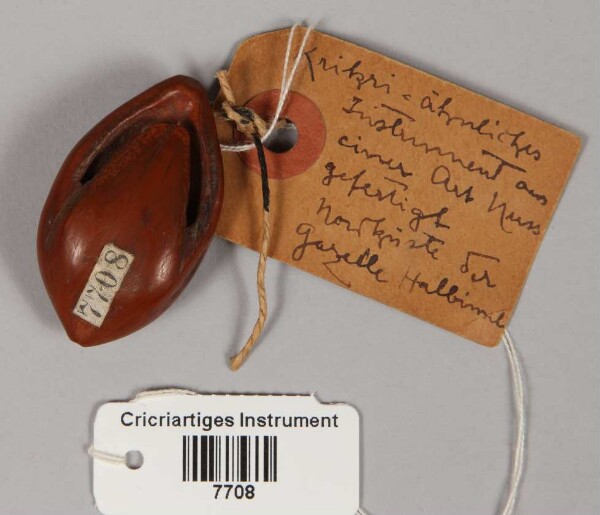 Krikri-ähnliches
Instrument aus
einer Art Nuss
gefertigt
Nordküste der
Gazelle Halbinsel
7708
Cricriartiges Instrument
7708